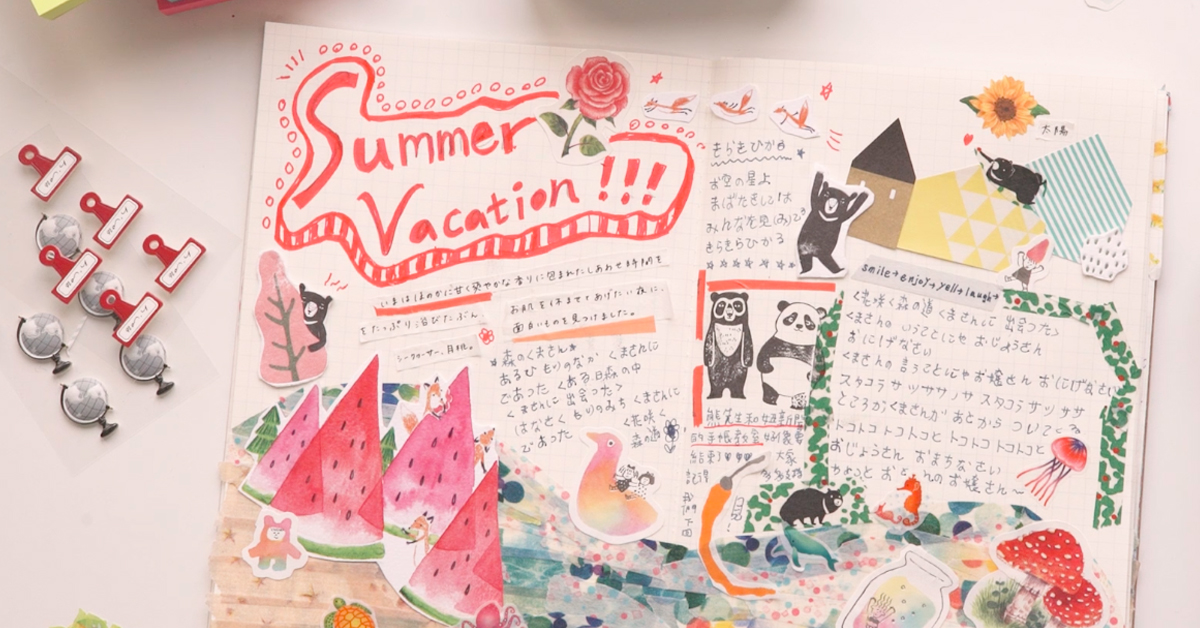 Summer
Vacation!!!
いまはほのかに甘く爽やかな香りに包まれたしあわせ時間を
をたっぷり浴びたぶん
お肌を休ませてあげたい夜に、
面白いものを見つけました。
森のくまさん
あるひ もりのなか くまさんに
であった くある日森の中
くまさんに出会った>
はなさく もりのみち くまさんに
であった
<花咲く
森の道
きらきらひかる
お空の星よ
まばたきしては
みんなを見(み)てる
きらきらひかる
太陽
smile+enjoy+yell+laugh+
<花咲く森の道 くまさんに 出会った>
くまさんの いうことにゃ おじょうさん
おにげなさい
<くまさんの言うことにゃお嬢さん おにげなさい
スタコラ サッササノ サ スタコラ サッササ
ところが くまさんが あとから ついてくる
トコトコ トコトコと トコトコ トコトコと
おじょうさん おまちなさい
お嬢さん〜